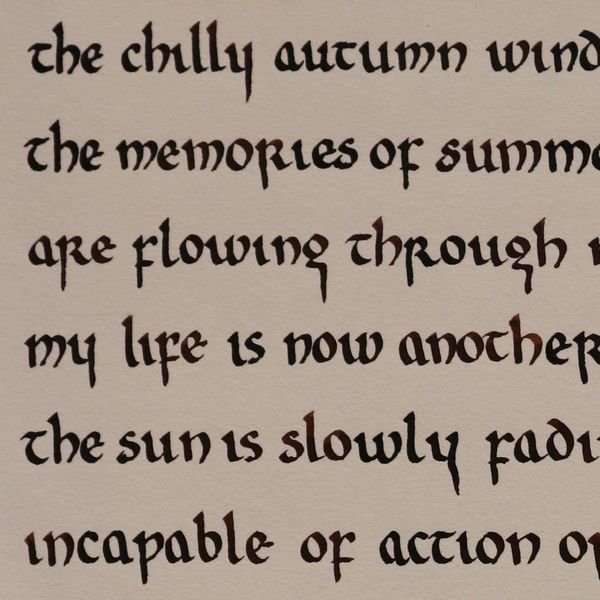 the chilly autumn wind
the memories of summe
are flowing through
my life is now another
the sun is slowly fadi
incapable of action or